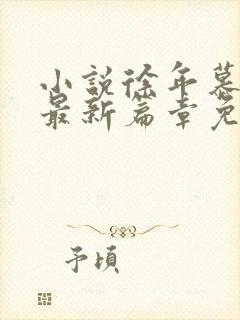 小說徐年慕
最新篇章免
予頃